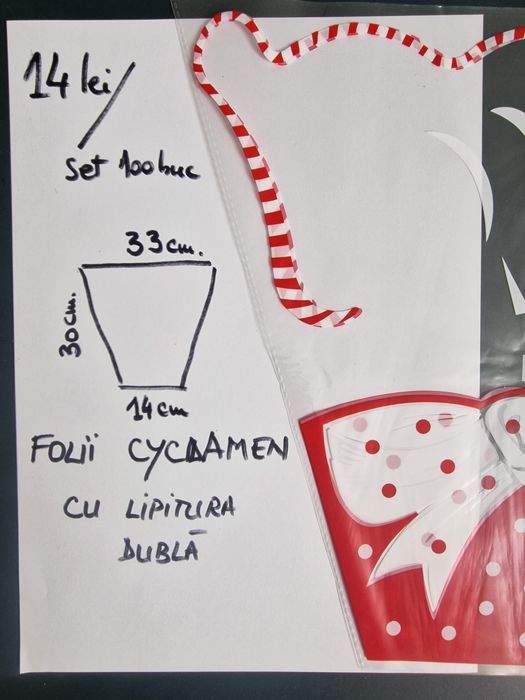 14 lei/
Set 100 buc
33 cm.
30 cm.
14 cm
FOLII CYCLAMEN
CU LIPITURA
DUBLĂ